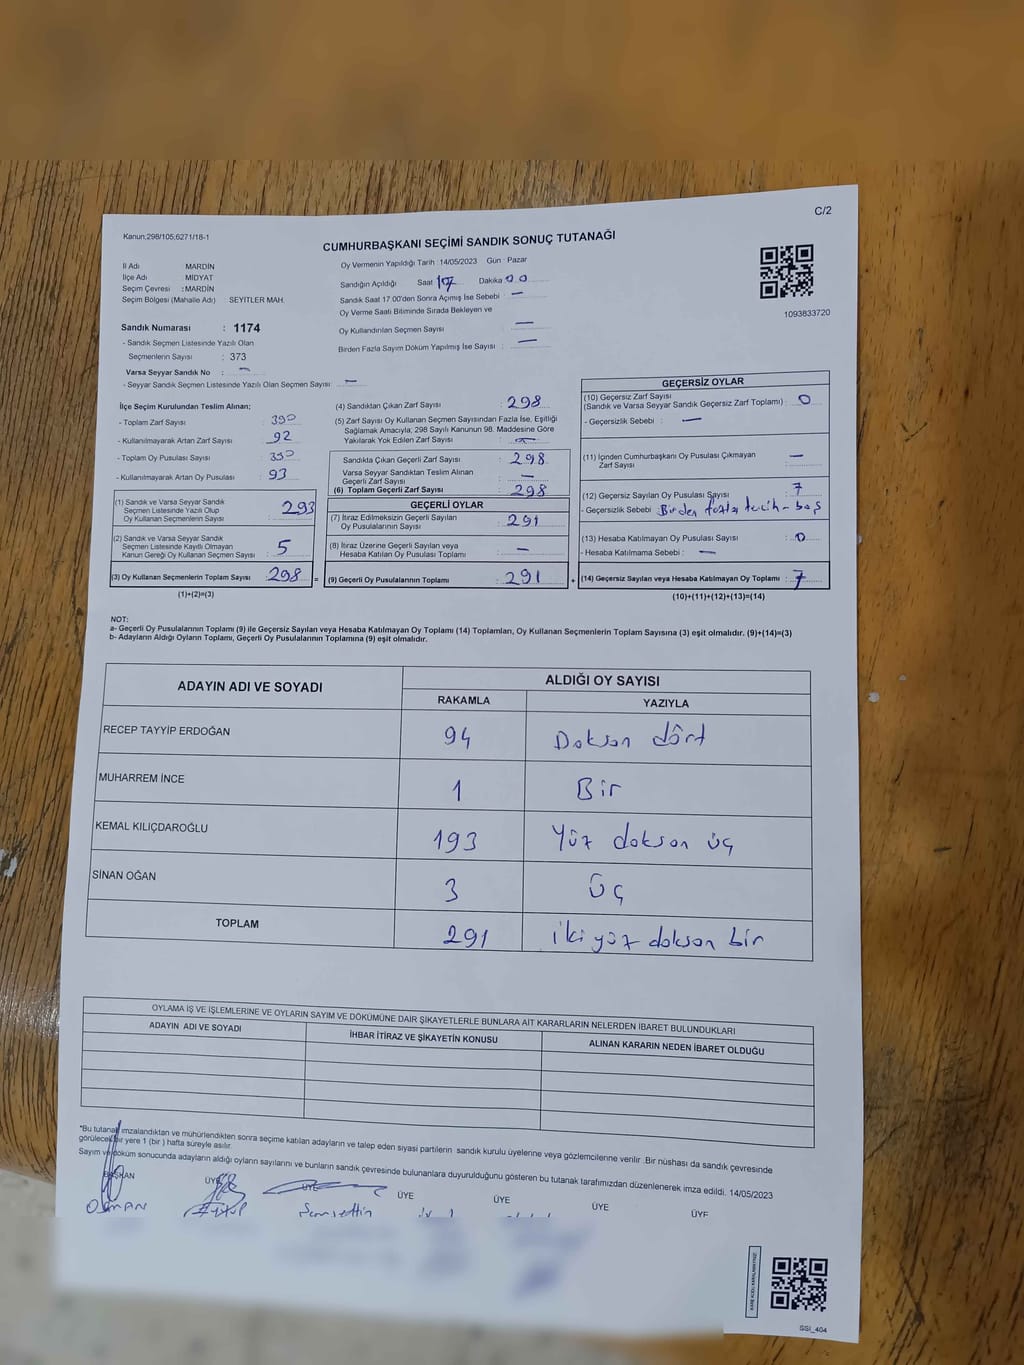 C/2
Kanun;298/105;6271/18-1
CUMHURBAŞKANI SEÇİMİ SANDIK SONUÇ TUTANAĞI
İl Adı MARDİN
İlçe Adı MİDYAT
Seçim Çevresi : MARDİN
Seçim Bölgesi (Mahalle Adı) SEYİTLER MAH.
Oy Vermenin Yapıldığı Tarih : 14/05/2023 Gün : Pazar
Sandığın Açıldığı Saat 17 Dakika 00
Sandık Saat 17.00'den Sonra Açılmış İse Sebebi : —
Oy Verme Saati Bitiminde Sırada Bekleyen ve
Oy Kullandırılan Seçmen Sayısı —
Birden Fazla Sayım Döküm Yapılmış İse Sayısı : —
1093833720
Sandık Numarası : 1174
- Sandık Seçmen Listesinde Yazılı Olan
Seçmenlerin Sayısı : 373
Varsa Seyyar Sandık No : —
- Seyyar Sandık Seçmen Listesinde Yazılı Olan Seçmen Sayısı : —
İlçe Seçim Kurulundan Teslim Alınan;
- Toplam Zarf Sayısı : 390
- Kullanılmayarak Artan Zarf Sayısı : 92
- Toplam Oy Pusulası Sayısı : 390
- Kullanılmayarak Artan Oy Pusulası : 93
(1) Sandık ve Varsa Seyyar Sandık
Seçmen Listesinde Yazılı Olup
Oy Kullanan Seçmenlerin Sayısı : 293
(2) Sandık ve Varsa Seyyar Sandık
Seçmen Listesinde Kayıtlı Olmayan
Kanun Gereği Oy Kullanan Seçmen Sayısı : 5
(3) Oy Kullanan Seçmenlerin Toplam Sayısı : 298 =
(1)+(2)=(3)
(4) Sandıktan Çıkan Zarf Sayısı : 298
(5) Zarf Sayısı Oy Kullanan Seçmen Sayısından Fazla İse, Eşitliği
Sağlamak Amacıyla, 298 Sayılı Kanunun 98. Maddesine Göre
Yakılarak Yok Edilen Zarf Sayısı :
Sandıkta Çıkan Geçerli Zarf Sayısı : 298
Varsa Seyyar Sandıktan Teslim Alınan
Geçerli Zarf Sayısı : —
(6) Toplam Geçerli Zarf Sayısı : 298
GEÇERLİ OYLAR
(7) İtiraz Edilmeksizin Geçerli Sayılan
Oy Pusulalarının Sayısı : 291
(8) İtiraz Üzerine Geçerli Sayılan veya
Hesaba Katılan Oy Pusulası Toplamı : —
(9) Geçerli Oy Pusulalarının Toplamı : 291 +
GEÇERSİZ OYLAR
(10) Geçersiz Zarf Sayısı
(Sandık ve Varsa Seyyar Sandık Geçersiz Zarf Toplamı) : 0
- Geçersizlik Sebebi : —
(11) İçinden Cumhurbaşkanı Oy Pusulası Çıkmayan
Zarf Sayısı : —
(12) Geçersiz Sayılan Oy Pusulası Sayısı : 7
- Geçersizlik Sebebi Birden fazla tercih - boş
(13) Hesaba Katılmayan Oy Pusulası Sayısı : 0
- Hesaba Katılmama Sebebi : —
(14) Geçersiz Sayılan veya Hesaba Katılmayan Oy Toplamı : 7
(10)+(11)+(12)+(13)=(14)
NOT:
a- Geçerli Oy Pusulalarının Toplamı (9) ile Geçersiz Sayılan veya Hesaba Katılmayan Oy Toplamı (14) Toplamları, Oy Kullanan Seçmenlerin Toplam Sayısına (3) eşit olmalıdır. (9)+(14)=(3)
b- Adayların Aldığı Oyların Toplamı, Geçerli Oy Pusulalarının Toplamına (9) eşit olmalıdır.
ADAYIN ADI VE SOYADI ALDIĞI OY SAYISI
RAKAMLA YAZIYLA
RECEP TAYYİP ERDOĞAN 94 Doksan dört
MUHARREM İNCE 1 Bir
KEMAL KILIÇDAROĞLU 193 Yüz doksan üç
SİNAN OĞAN 3 Üç
TOPLAM 291 iki yüz doksan bir
OYLAMA İŞ VE İŞLEMLERİNE VE OYLARIN SAYIM VE DÖKÜMÜNE DAİR ŞİKAYETLERLE BUNLARA AİT KARARLARIN NELERDEN İBARET BULUNDUKLARI
ADAYIN ADI VE SOYADI İHBAR İTİRAZ VE ŞİKAYETİN KONUSU ALINAN KARARIN NEDEN İBARET OLDUĞU
*Bu tutanak imzalandıktan ve mühürlendikten sonra seçime katılan adayların ve talep eden siyasi partilerin sandık kurulu üyelerine veya gözlemcilerine verilir .Bir nüshası da sandık çevresinde
görülecek bir yere 1 (bir ) hafta süreyle asılır.
Sayım ve döküm sonucunda adayların aldığı oyların sayılarını ve bunların sandık çevresinde bulunanlara duyurulduğunu gösteren bu tutanak tarafımızdan düzenlenerek imza edildi. 14/05/2023
BAŞKAN ÜYE ÜYE ÜYE ÜYE ÜYE ÜYE
OSMAN Şemsettin
SSI_404